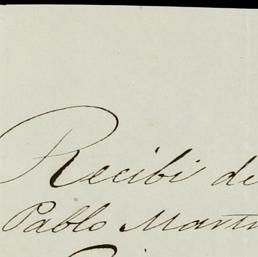 Recibi de
Pablo Mart